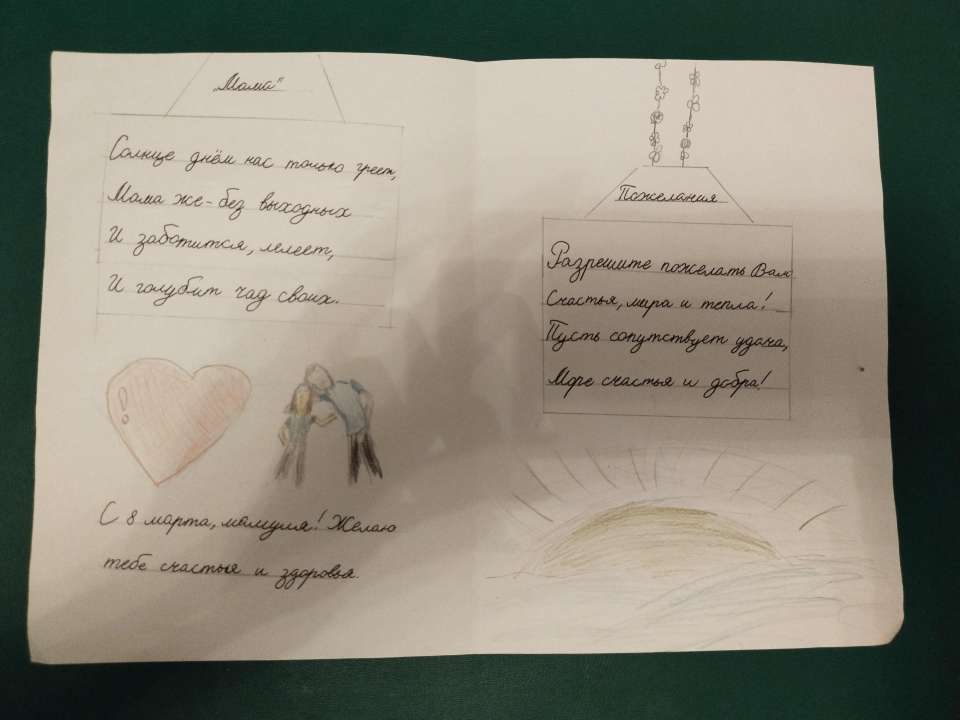 „Мама“
Солнце днём нас только греет,
Мама же - без выходных
И заботится, лелеет,
И голубит чад своих.
С 8 марта, мамуля! Желаю
тебе счастья и здоровья.
Пожелания
Разрешите пожелать Вам
Счастья, мира и тепла!
Пусть сопутствует удача,
Море счастья и добра!